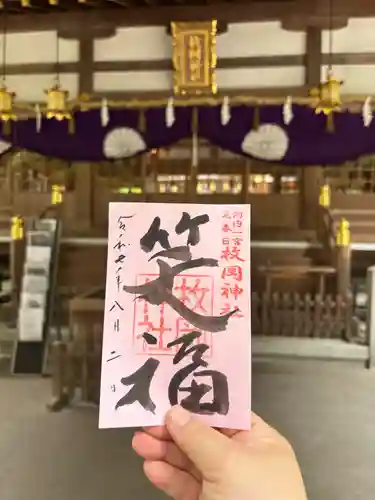 河内一之宮
元春日 枚岡神社
笑福
枚岡神社
令和七年八月二日